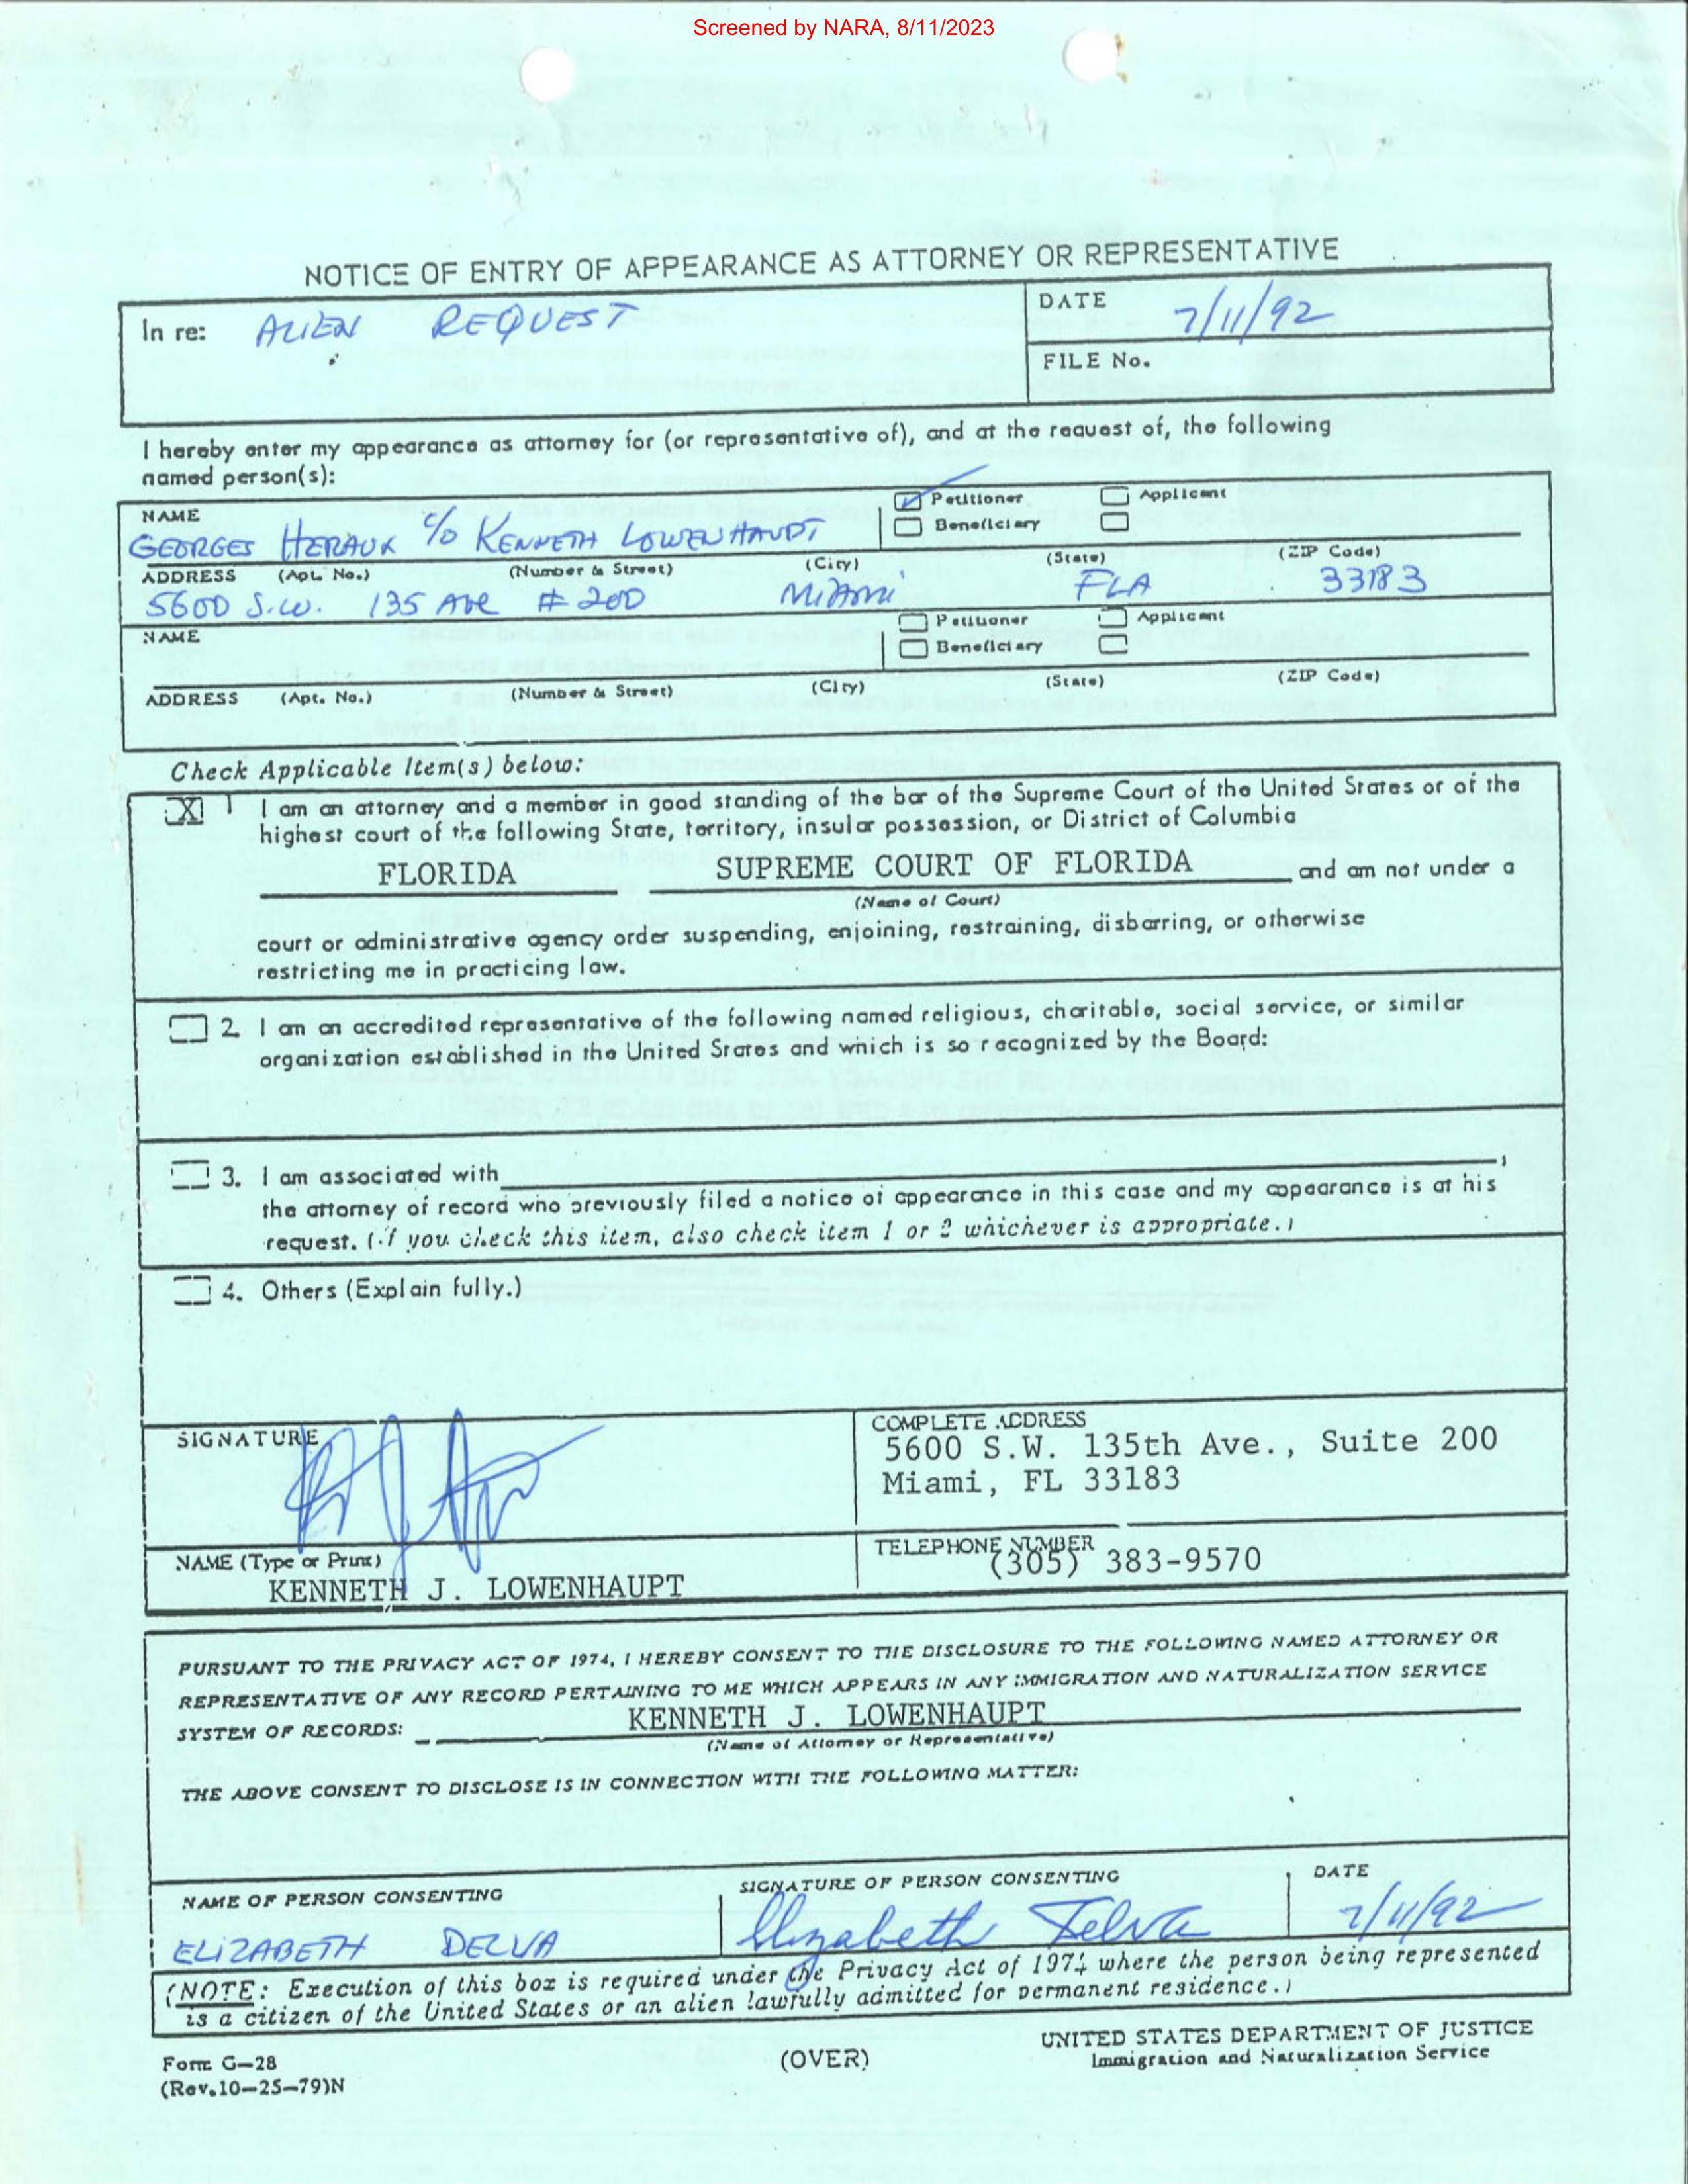 Screened by NARA, 8/11/2023
NOTICE OF ENTRY OF APPEARANCE AS ATTORNEY OR REPRESENTATIVE
In re: ALIEN REQUEST
DATE 7/11/92
FILE No.
I hereby enter my appearance as attorney for (or representative of), and at the request of, the following
named person(s):
NAME
Petitioner Applicant
Beneficiary
GEORGES HERAUX c/o KENNETH LOWENHAUPT
ADDRESS (Apt. No.) (Number & Street) (City) (State) (ZIP Code)
5600 S.W. 135 Ave # 200 Miami FLA 33183
NAME
Petitioner Applicant
Beneficiary
ADDRESS (Apt. No.) (Number & Street) (City) (State) (ZIP Code)
Check Applicable Item(s) below:
X 1 I am an attorney and a member in good standing of the bar of the Supreme Court of the United States or of the
highest court of the following State, territory, insular possession, or District of Columbia
FLORIDA SUPREME COURT OF FLORIDA and am not under a
(Name of Court)
court or administrative agency order suspending, enjoining, restraining, disbarring, or otherwise
restricting me in practicing law.
2. I am an accredited representative of the following named religious, charitable, social service, or similar
organization established in the United States and which is so recognized by the Board:
3. I am associated with ,
the attorney of record who previously filed a notice of appearance in this case and my appearance is at his
request. (If you check this item, also check item 1 or 2 whichever is appropriate.)
4. Others (Explain fully.)
SIGNATURE
COMPLETE ADDRESS
5600 S.W. 135th Ave., Suite 200
Miami, FL 33183
NAME (Type or Print)
KENNETH J. LOWENHAUPT
TELEPHONE NUMBER
(305) 383-9570
PURSUANT TO THE PRIVACY ACT OF 1974, I HEREBY CONSENT TO THE DISCLOSURE TO THE FOLLOWING NAMED ATTORNEY OR
REPRESENTATIVE OF ANY RECORD PERTAINING TO ME WHICH APPEARS IN ANY IMMIGRATION AND NATURALIZATION SERVICE
SYSTEM OF RECORDS: KENNETH J. LOWENHAUPT
(Name of Attorney or Representative)
THE ABOVE CONSENT TO DISCLOSE IS IN CONNECTION WITH THE FOLLOWING MATTER:
NAME OF PERSON CONSENTING
ELIZABETH DELVA
SIGNATURE OF PERSON CONSENTING
Elizabeth Delva
DATE
7/11/92
(NOTE: Execution of this box is required under the Privacy Act of 1974 where the person being represented
is a citizen of the United States or an alien lawfully admitted for permanent residence.)
Form G-28
(Rev.10-25-79)N
(OVER)
UNITED STATES DEPARTMENT OF JUSTICE
Immigration and Naturalization Service